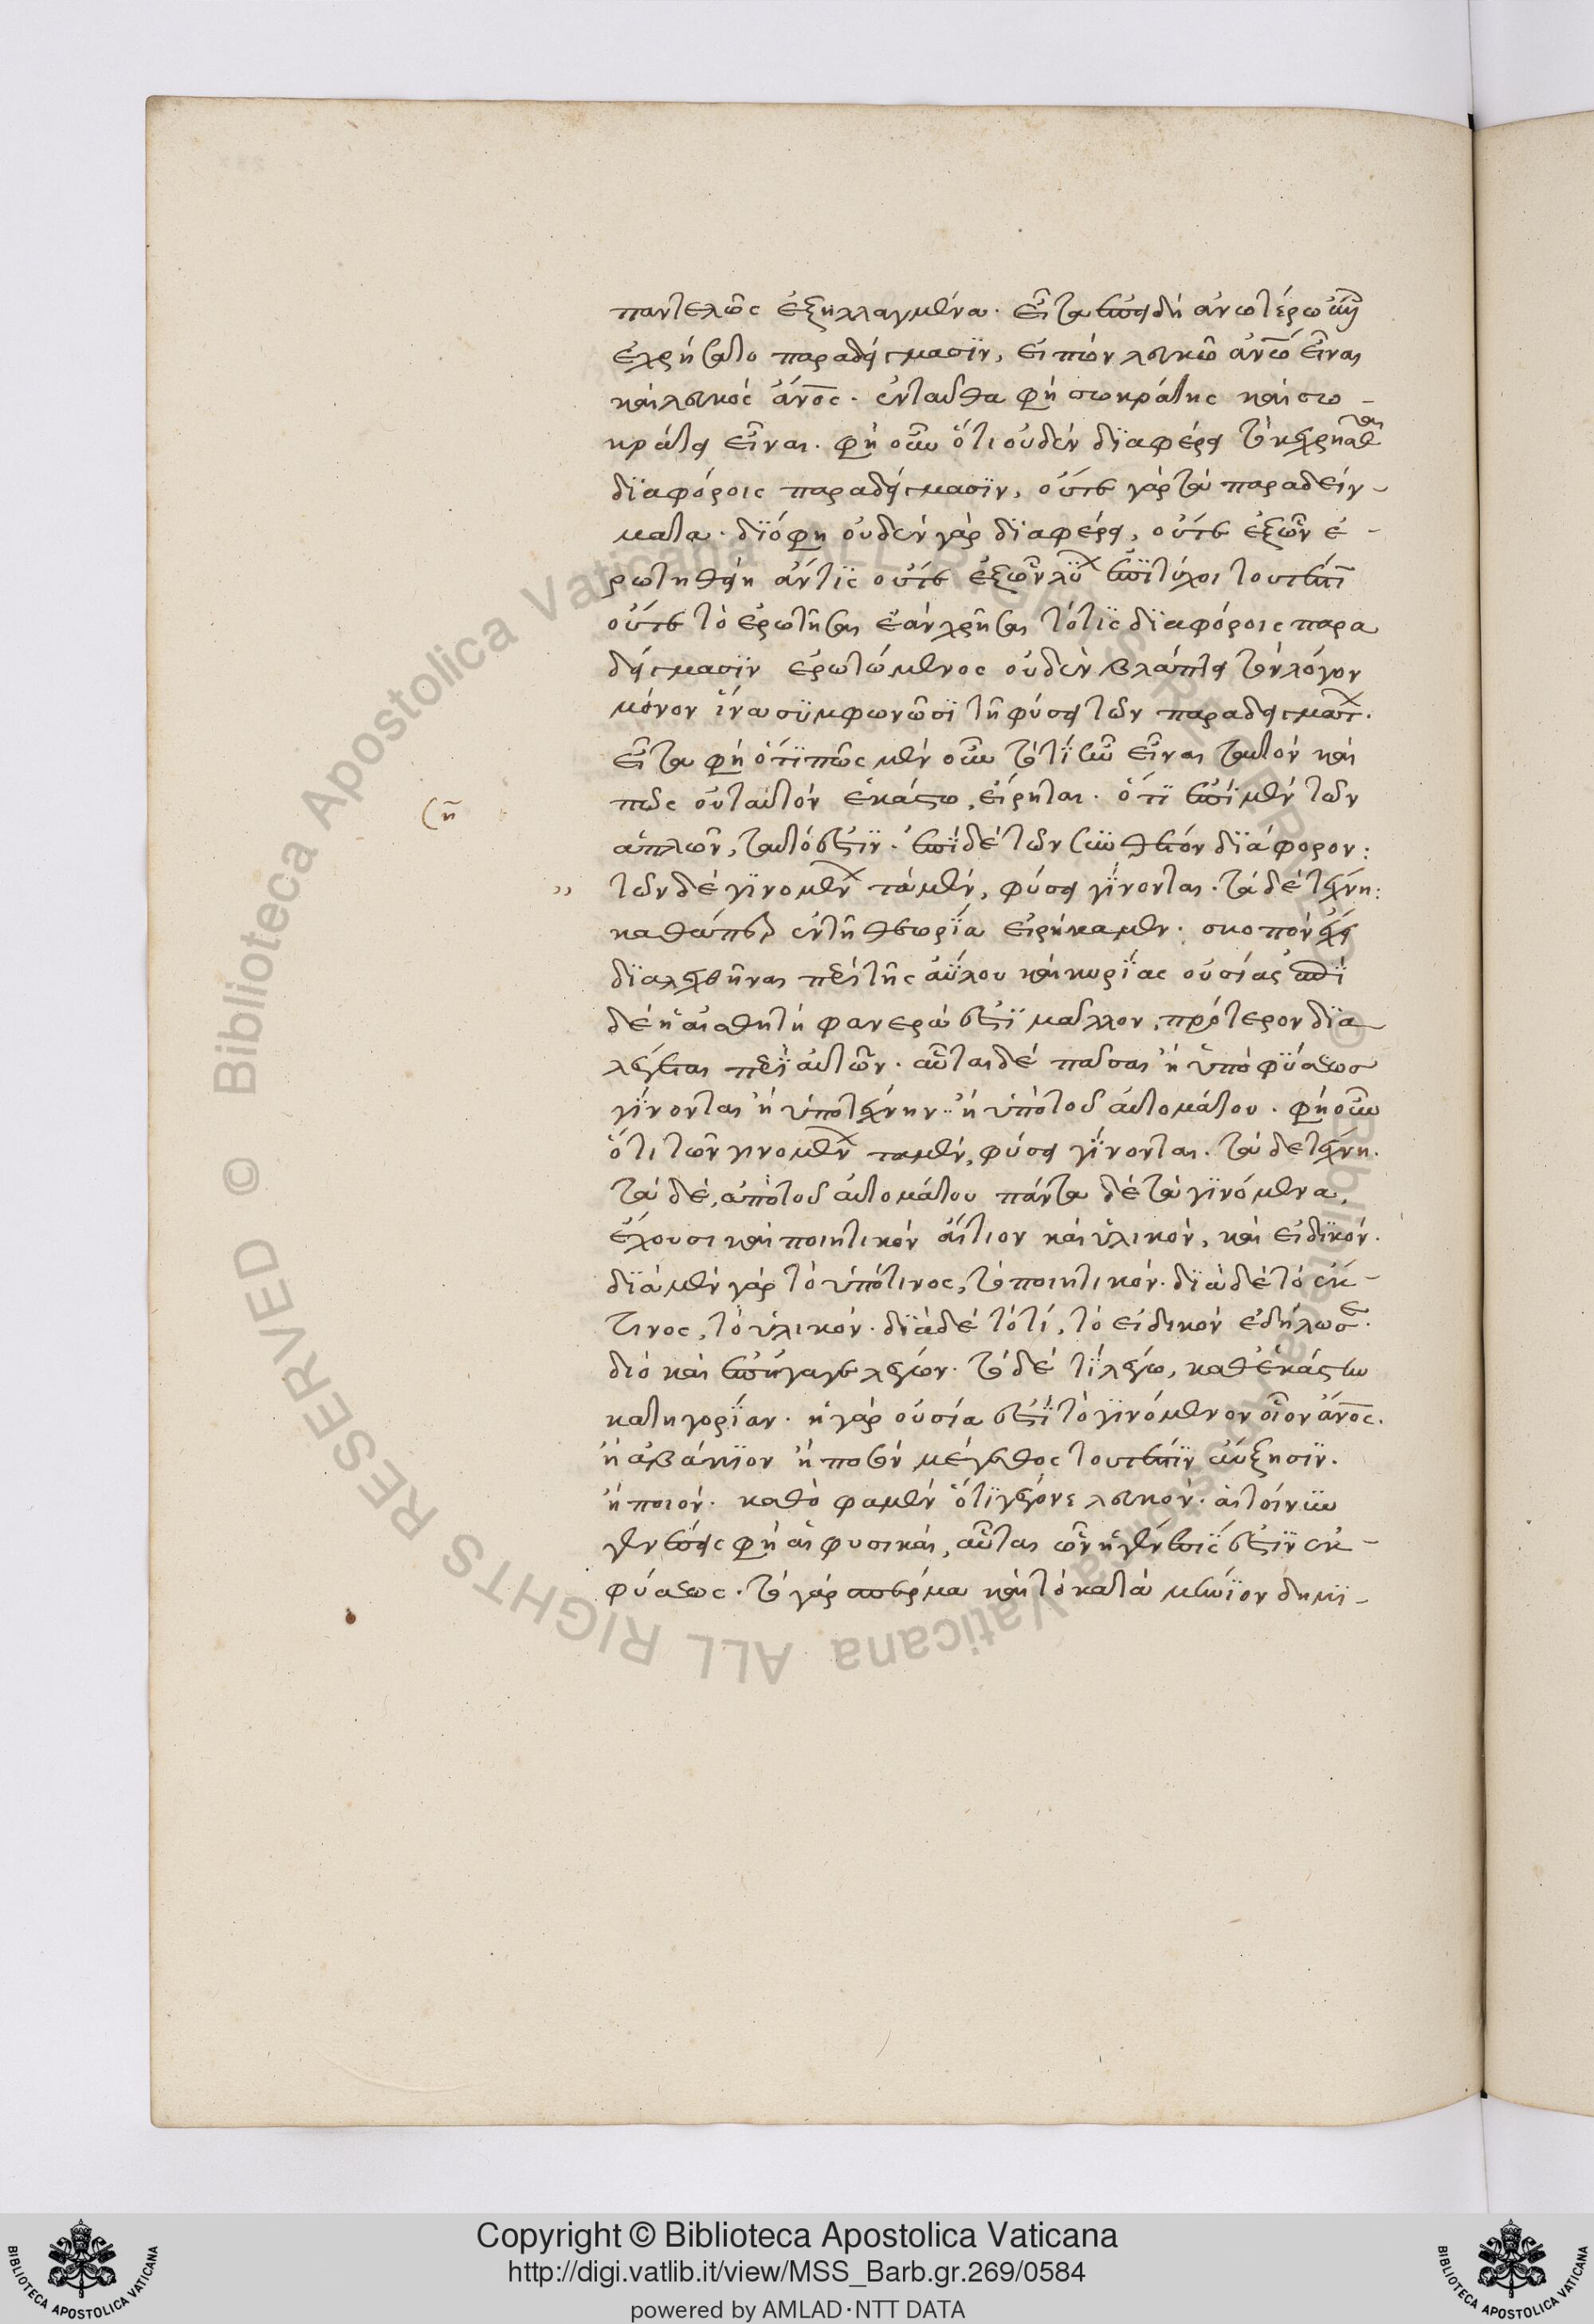 παντελῶς ἐξηλλαγμένα. εἶτα ἐπειδὴ ἀνωτέρω
ἐχρήσατο παραδείγμασιν, εἰπὼν λευκῶ ἀνω εἶναι
καὶ λευκὸς ἄνος. ἐνταῦθα φη σωκράτης καὶ σω-
κράτει εἶναι. φη οὖν ὅτι οὐδὲν διαφέρει τὸ κεχρῆσθαι
διαφόροις παραδείγμασιν, οὔτε γὰρ τὰ παραδείγ-
ματα. διό φη οὐδὲν γὰρ διαφέρει, οὔτε ἐξ ὧν ἐ-
ρωτηθείη ἄν τις οὔτε ἐξ ὧν λύ ἐπιτύχοι τουτέστι
οὔτε τὸ ἐρωτῆσαι ἐὰν χρῆσαι τό τις διαφόροις παρα
δείγμασιν ἐρωτώμενος οὐδὲν βλάπτει τὸν λόγον
μόνον ἵνα συμφωνῶσι τῆ φύσει τῶν παραδειγματ.
εἶτα φη ὅτι πῶς μὲν οὖν τὸ τί ἦν εἶναι ταυτὸν καὶ
πῶς οὐ ταυτὸν ἑκάστω, εἴρηται. ὅτι ἐπὶ μὲν τῶν
ἁπλῶν, ταυτό ἐστιν. ἐπὶ δὲ τῶν συνθέτων διάφορον:
ση
,, τῶν δὲ γινομεν τὰ μὲν, φύσει γίνονται. τὰ δὲ τέχνη:
καθάπερ ἐν τῆ θεωρία εἰρήκαμεν. σκοπὸν ἔχει
διαλεχθῆναι περὶ τῆς ἀύλου καὶ κυρίας οὐσίας ἐπεὶ
δὲ ἡ αἰσθητὴ φανερά ἐστι μᾶλλον, πρότερον δια
λέγεται περὶ αὐτῶν. αὗται δὲ πᾶσαι ἢ ὑπὸ φύσεως
γίνονται ἢ ὑπὸ τέχνην.. ἢ ὑπὸ τοῦ αὐτομάτου. φη οὖν
ὅτι τῶν γινομεν τα μὲν, φύσει γίνονται. τὰ δὲ τέχνη.
τὰ δὲ, ἀπὸ τοῦ αὐτομάτου πάντα δὲ τὰ γινόμενα,
ἔχουσι καὶ ποιητικὸν αἴτιον καὶ ὑλικὸν, καὶ εἰδικόν.
διὰ μὲν γὰρ τὸ ὑπό τινος, τὸ ποιητικόν. διὰ δὲ τὸ ἔκ-
τινος, τὸ ὑλικόν. διὰ δὲ τὸ τί, τὸ εἰδικὸν ἐδήλωσε.
διὸ καὶ ἐπήγαγε λέγων. τὸ δὲ τὶ λέγω, καθ ἑκάστην
κατηγορίαν. ἡ γὰρ οὐσία ἐστὶ τὸ γινόμενον οἷον ἄνος.
ἢ ἢ ποσὸν μέγεθος τουτέστιν αὔξησιν.
ἢ ποιόν. καθὸ φαμὲν ὅτι γέγονε λευκόν. αἱ τοίνυν
γενέσεις φη αἱ φυσικαὶ, αὗται ὧν ἡ γένεσίς ἐστιν ἐκ-
φύσεως. τὸ γὰρ σπέρμα καὶ τὸ καταμήνιον δημι-
Copyright © Biblioteca Apostolica Vaticana
http://digi.vatlib.it/view/MSS_Barb.gr.269/0584
powered by AMLAD·NTT DATA
BIBLIOTECA APOSTOLICA VATICANA
BIBLIOTECA APOSTOLICA VATICANA
© Biblioteca Apostolica Vaticana ALL RIGHTS RESERVED
© Biblioteca Apostolica Vaticana ALL RIGHTS RESERVED